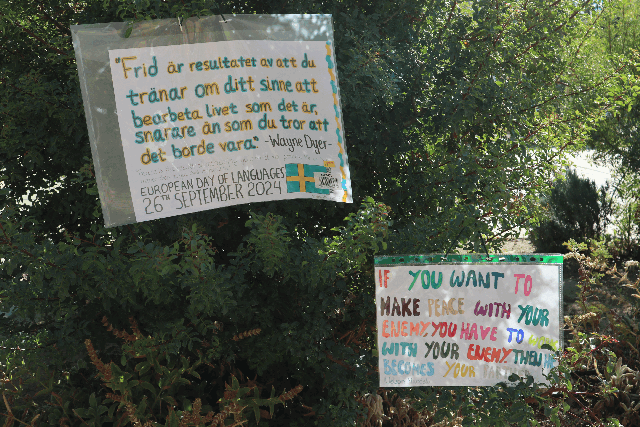 "Frid är resultatet av att du
tränar om ditt sinne att
bearbeta livet som det är,
snarare än som du tror att
det borde vara." -Wayne Dyer-
EUROPEAN DAY OF LANGUAGES
26TH SEPTEMBER 2024
IF YOU WANT TO
MAKE PEACE WITH
YOUR
ENEMY YOU HAVE TO
WITH YOUR ENEMY. THEN
BECOMES YOUR